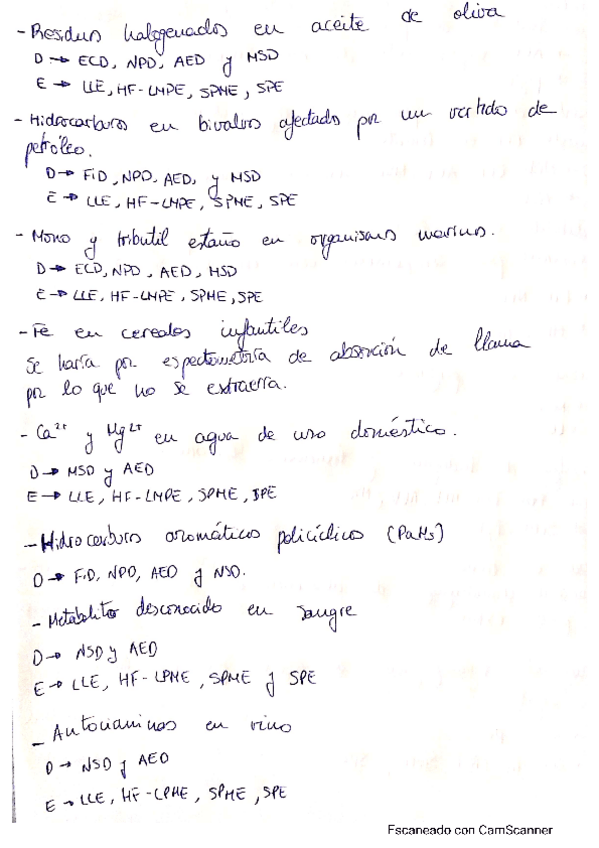 - Residuos halogenados en aceite de oliva
D → ECD, NPD, AED y MSD
E → LLE, HF-LMPE, SPME, SPE
- Hidrocarburos en bivalvos afectados por un vertido de
petróleo.
D → FiD, NPD, AED, y MSD
E → LLE, HF-LMPE, SPME, SPE
- Mono y tributil estaño en organismos marinos.
D → ECD, NPD, AED, MSD
E → LLE, HF-LMPE, SPME, SPE
- Fe en cereales infantiles
Se haría por espectometría de absorción de llama
por lo que no se extraerra.
- Ca²⁺ y Mg²⁺ en agua de uso doméstico.
D → MSD y AED
E → LLE, HF-LMPE, SPME, SPE
- Hidrocarburos aromáticos policíclicos (PaHs)
D → FiD, NPD, AED y MSD.
- Metabolitos desconocido en sangre
D → MSD y AED
E → LLE, HF-LPME, SPME y SPE
- Antocianinas en vino
D → MSD y AED
E → LLE, HF-LPME, SPME, SPE
Escaneado con CamScanner